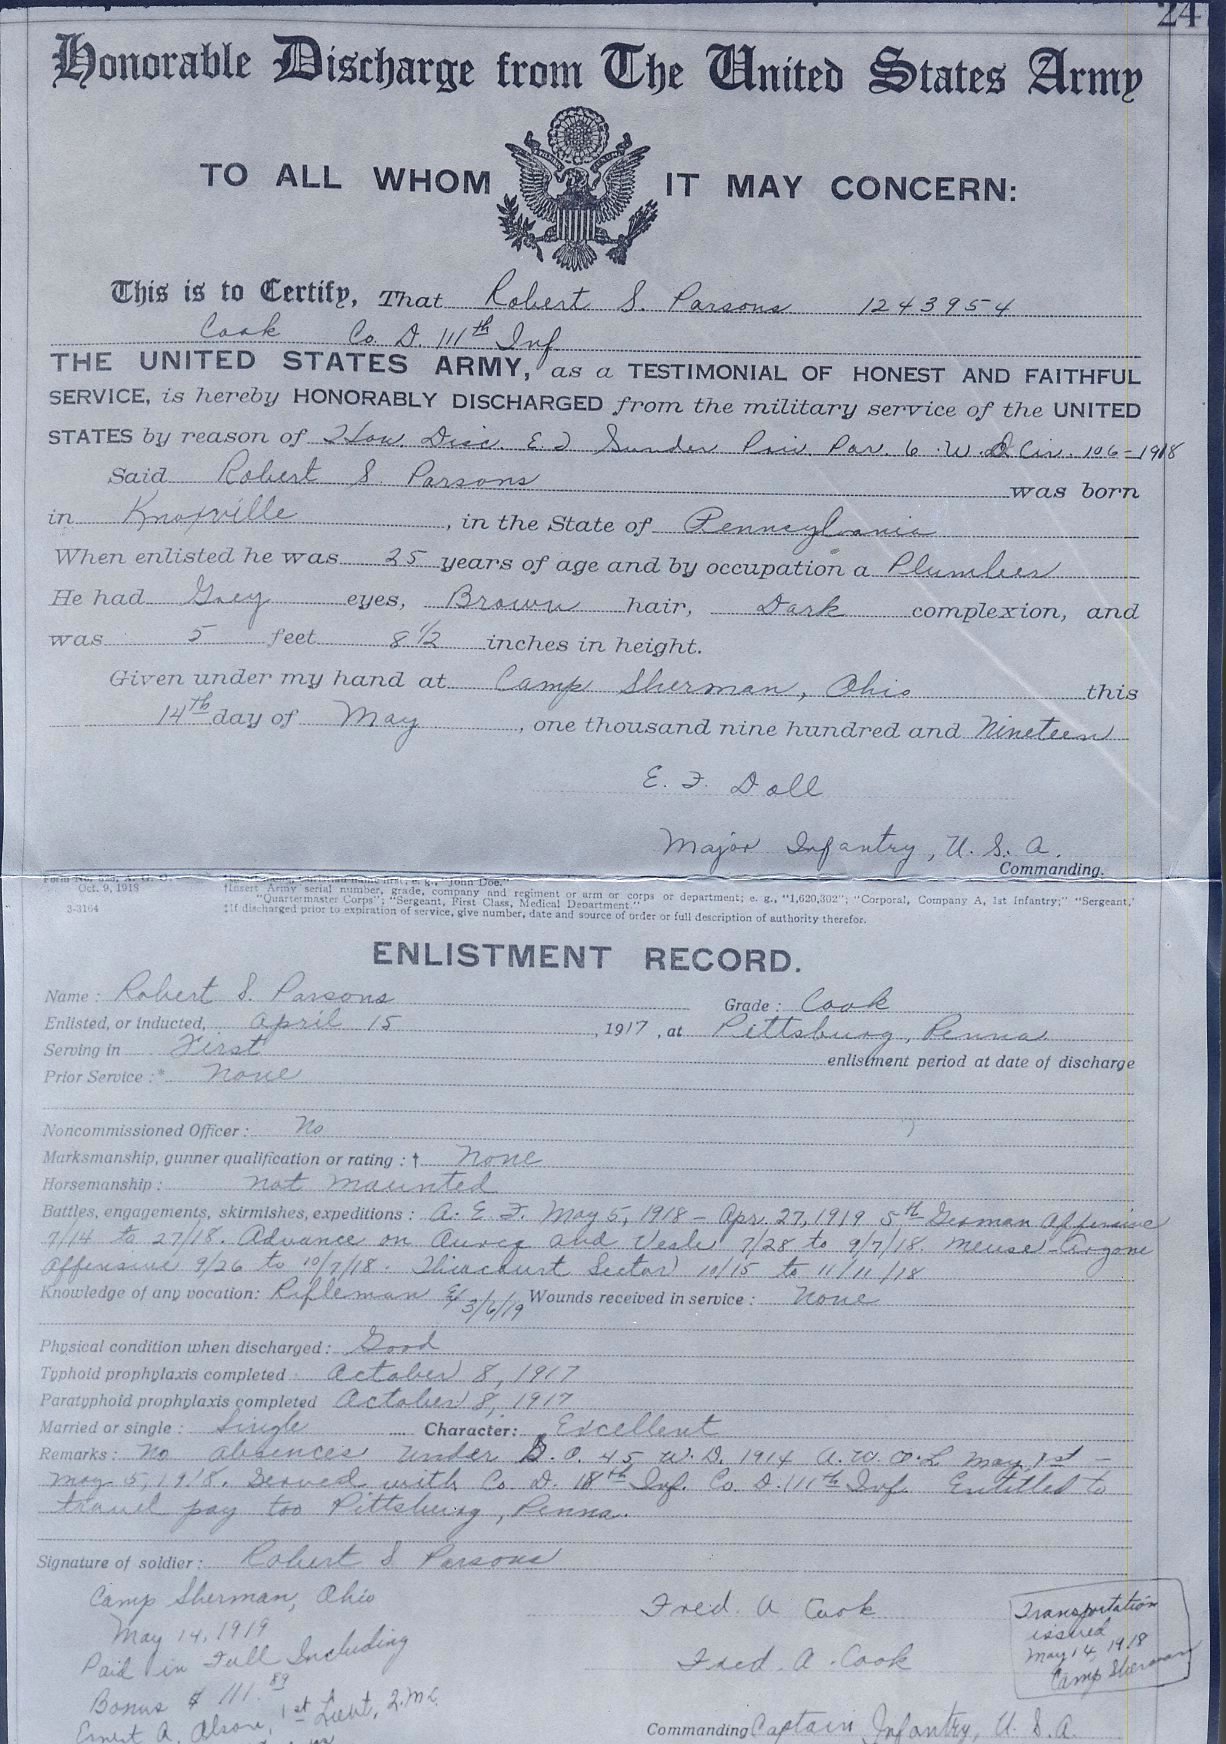 24
Honorable Discharge from The United States Army
TO ALL WHOM IT MAY CONCERN:
This is to Certify, That Robert S. Parsons 1243954
Cook Co. D. 111th Inf
THE UNITED STATES ARMY, as a TESTIMONIAL OF HONEST AND FAITHFUL
SERVICE, is hereby HONORABLY DISCHARGED from the military service of the UNITED
STATES by reason of Hon. Disc. Par. 6 W. D. Cir. 106-1918
Said Robert S. Parsons was born
in Knoxville, in the State of Pennsylvania
When enlisted he was 25 years of age and by occupation a Plumber
He had Grey eyes, Brown hair, Dark complexion, and
was 5 feet 8 1/2 inches in height.
Given under my hand at Camp Sherman, Ohio this
14th day of May, one thousand nine hundred and Nineteen
E. F. Doll
Major Infantry, U. S. A.
Commanding.
Oct. 9, 1918
3-3164
e. g., "John Doe."
†Insert Army serial number, grade, company and regiment or arm or corps or department; e. g., "1,620,302"; "Corporal, Company A, 1st Infantry;" "Sergeant,
"Quartermaster Corps"; "Sergeant, First Class, Medical Department."
‡If discharged prior to expiration of service, give number, date and source of order or full description of authority therefor.
ENLISTMENT RECORD.
Name: Robert S. Parsons Grade: Cook
Enlisted, or inducted, April 15, 1917, at Pittsburg, Penna.
Serving in First enlistment period at date of discharge
Prior Service:* None
Noncommissioned Officer: No
Marksmanship, gunner qualification or rating: † None
Horsemanship: Not Mounted
Battles, engagements, skirmishes, expeditions: A. E. F. May 5, 1918 - Apr. 27, 1919 5th German Offensive
7/14 to 27/18. Advance on Ourcq and Vesle 7/28 to 9/7/18. Meuse-Argone
Offensive 9/26 to 10/7/18. Thiacourt Sector 10/15 to 11/11/18
Knowledge of any vocation: Rifleman 3/6/19 Wounds received in service: None
Physical condition when discharged: Good
Typhoid prophylaxis completed: October 8, 1917
Paratyphoid prophylaxis completed October 8, 1917
Married or single: Single Character: Excellent
Remarks: No absences under G. O. 45, W. D. 1914 A. W. O. L May 1st -
May 5, 1918. Served with Co D. 18th Inf. Co. D. 111th Inf. Entitled to
travel pay too Pittsburg, Penna.
Signature of soldier: Robert S Parsons
Camp Sherman, Ohio
May 14, 1919
Paid in Full Including
Bonus $ 111.89
Ernest A. 1st Lieut, Q.M.C.
Fred. A Cook
Fred. A. Cook
Commanding Captain Infantry, U. S. A.
Transportation
issued
May 14, 1918
Camp Sherman